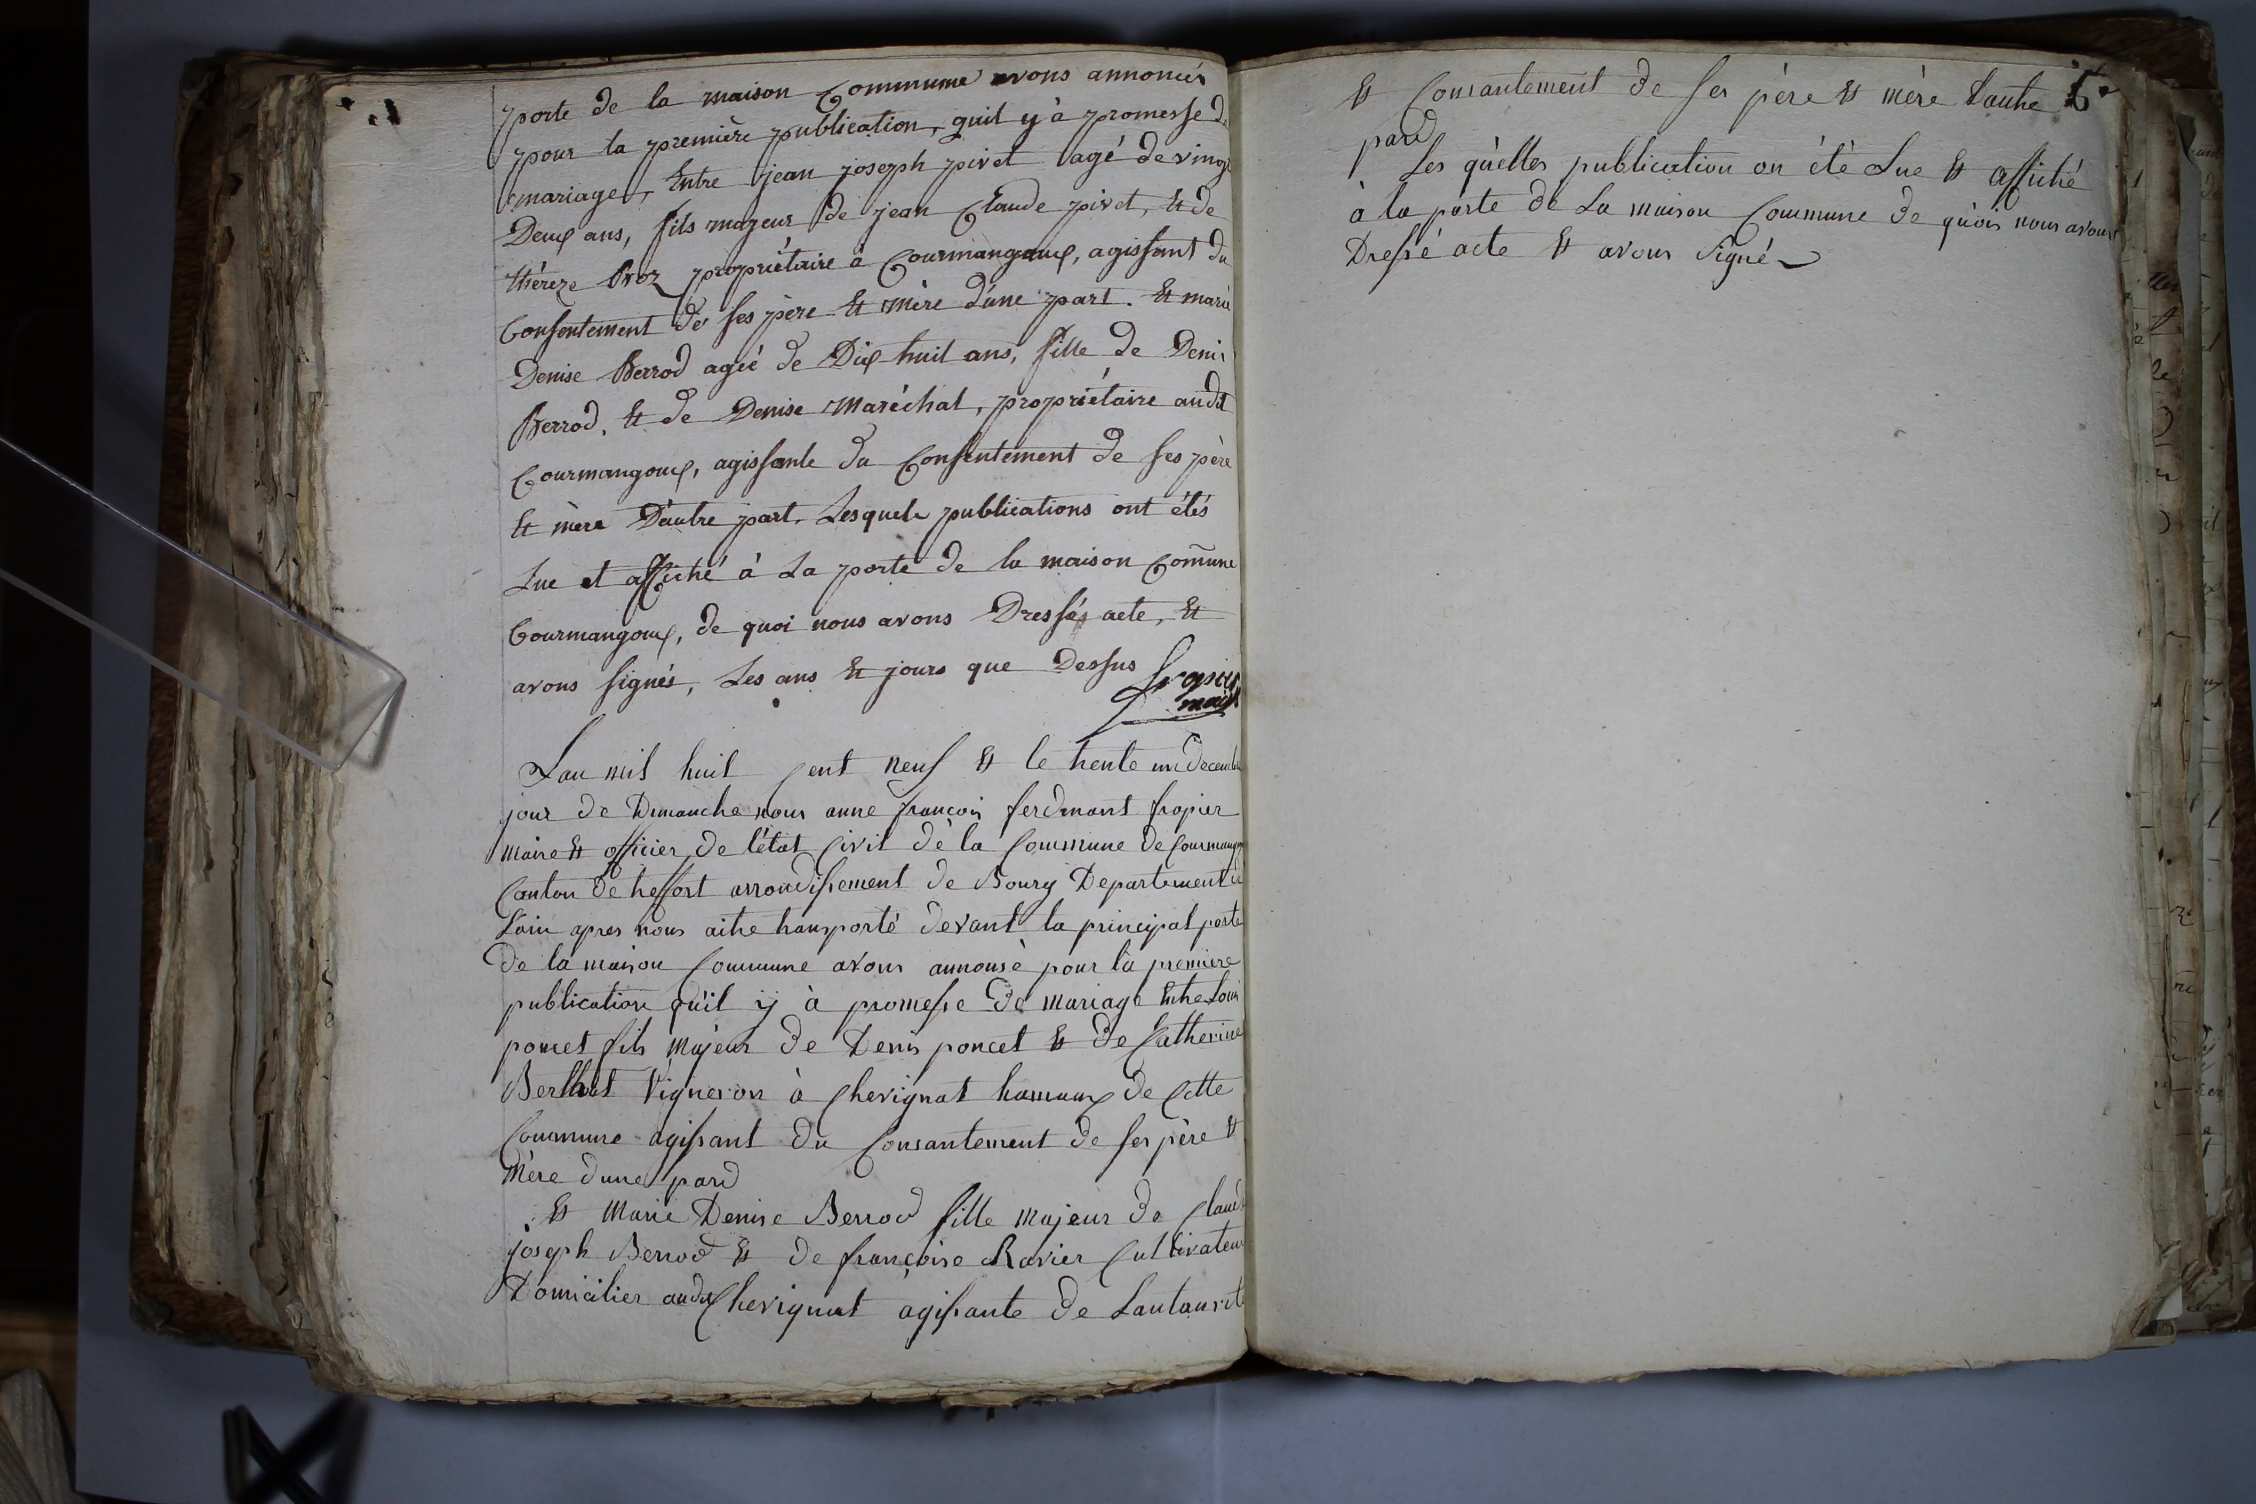 porte de la maison Commune avons annoncés
pour la première publication, quil y à promesse de
mariage, Entre jean joseph pivet agé de vingt
Deux ans, fils majeur de jean Claude pivet, et de
théreze Proz propriétaire à Courmangoux, agissant du
Consentement de ses père Et mère d'une part. Et marie
Denise Berrod agée de Dix huit ans, fille de Denis
Berrod, Et de Denise Maréchal, propriétaire audit
Courmangoux, agissante du Consentement de ses père
Et mère D'autre part, Lesquels publications ont étés
Lue et affiché à La porte de la maison Comune
Courmangoux, de quoi nous avons Dressés acte, Et
avons signés, Les ans Et jours que Dessus
fropier
maire
Lan mil huit Cent neuf Et le trente un decembre
jour de Dimanche nous anne françois ferdinant fropier
Maire Et officier de létat Civil de la Commune de Courmangoux
Canton de treffort arrondissement de Bourg Departement de
Lain apres nous aitre transporté devant la principal porte
de la maison Commune avons annonsé pour la premiere
publication qu'il y à promesse de mariage Entre Louis
poncet fils Majeur de Denis poncet Et de Catherine
Berthet Vigneron à Chevignat hamaux de Cette
Commune agissant du Consantement de ses père Et
Mère dune pard
Et Marie Denise Berrod fille Majeur de Claude
joseph Berrod Et de françoise Ravier Cultivateur
Domicilier audit Chevignat agissante de Lautaurité
Et Consantement de ses père Et mère dautre
pard
Les quelles publication on été Lue Et affiché
à la porte de La maison Commune de quois nous avons
Dressé acte Et avons signé